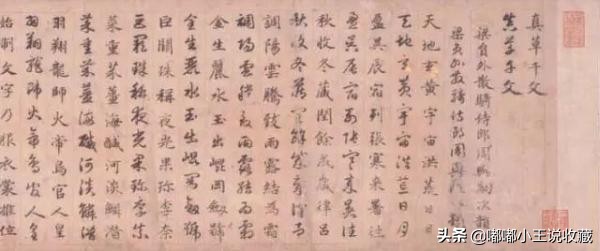 真草千文
真草千文
梁員外散騎侍郎周興嗣次韻
梁員外散騎侍郎周興嗣次韻
天地玄黃宇宙洪荒日月
天地玄黃宇宙洪荒日月
盈昃辰宿列張寒來暑往
盈昃辰宿列張寒來暑往
秋收冬藏閏餘成歲律呂
秋收冬藏閏餘成歲律呂
調陽雲騰致雨露結為霜
調陽雲騰致雨露結為霜
金生麗水玉出崐岡劍號
金生麗水玉出崐岡劍號
巨闕珠稱夜光果珍李柰
巨闕珠稱夜光果珍李柰
菜重芥薑海鹹河淡鱗潛
菜重芥薑海鹹河淡鱗潛
羽翔龍師火帝鳥官人皇
羽翔龍師火帝鳥官人皇
始制文字乃服衣裳推位
头条 @嘟嘟小王说收藏